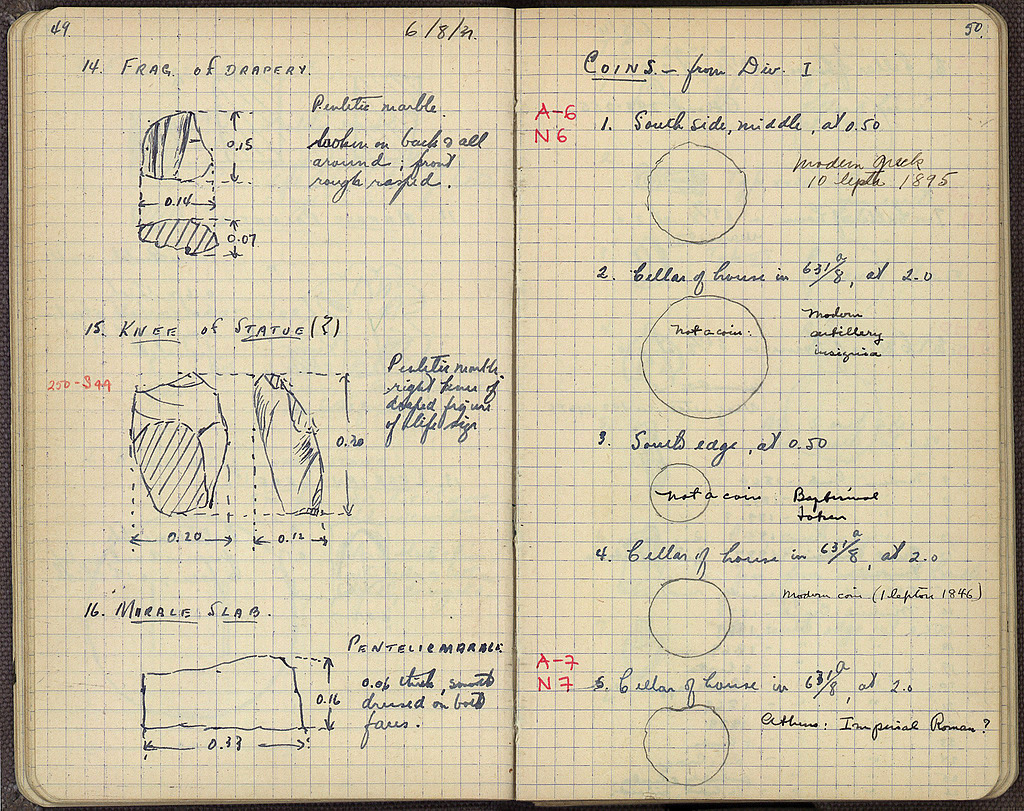 49.
6/8/31.
14. FRAG. of DRAPERY.
Pentelic marble.
broken on back & all
around; front
rough rasped.
0.15
0.14
0.07
15. KNEE of STATUE (?)
250-S44
Pentelic marble
right knee of
draped figure
of life size
0.20
0.20
0.12
16. MARBLE SLAB.
PENTELIC MARBLE
0.06 thick, smooth
dressed on both
faces.
0.16
0.33
50.
COINS – from Div. I
A-6
N 6
1. South side, middle, at 0.50
modern greek
10 lepta 1895
2. Cellar of house in 631a/8, at 2.0
not a coin:
Modern
artillery
insignia
3. South edge, at 0.50
not a coin: Baptismal
token
4. Cellar of house in 631a/8, at 2.0
Modern coin (1 lepton 1846)
A-7
N 7
5. Cellar of house in 631a/8, at 2.0
Athens: Imperial Roman?